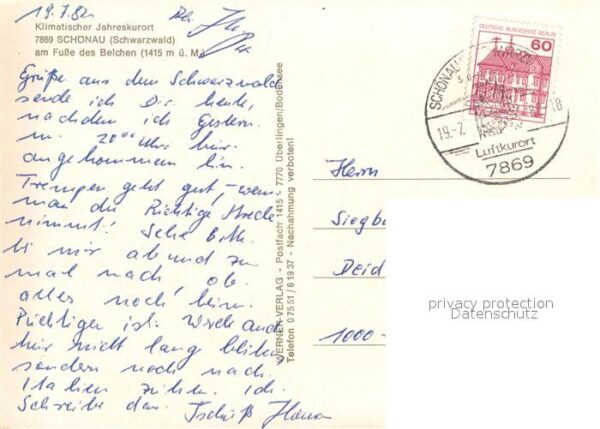 19.7.82
Klimatischer Jahreskurort
7869 SCHÖNAU (Schwarzwald)
am Fuße des Belchen (1415 m ü. M.)
Grüße aus dem Schwarzwald
sende ich Dir heute,
nachdem ich gestern
20 00 Uhr hier
angekommen bin.
Trempen geht gut, wenn
man die Richtige Strecke
nimmt! Sehe Bitte
bei mir ab und zu
mal nach ob
alles noch beim
Richtigen ist. Werde auch
hier nicht lang bleiben
sondern noch nach
Italien ziehen. Ich
Schreibe dann. Tschüß
WERNER-VERLAG - Postfach 1415 - 7770 Überlingen/Bodensee
Telefon 0 75 51 / 6 19 37 - Nachahmung verboten!
DEUTSCHE BUNDESPOST BERLIN
60
SCHÖNAU
19.-7.
18
Luftkurort
7869
Herrn
Siegb
Deid
1000-
privacy protection
Datenschutz